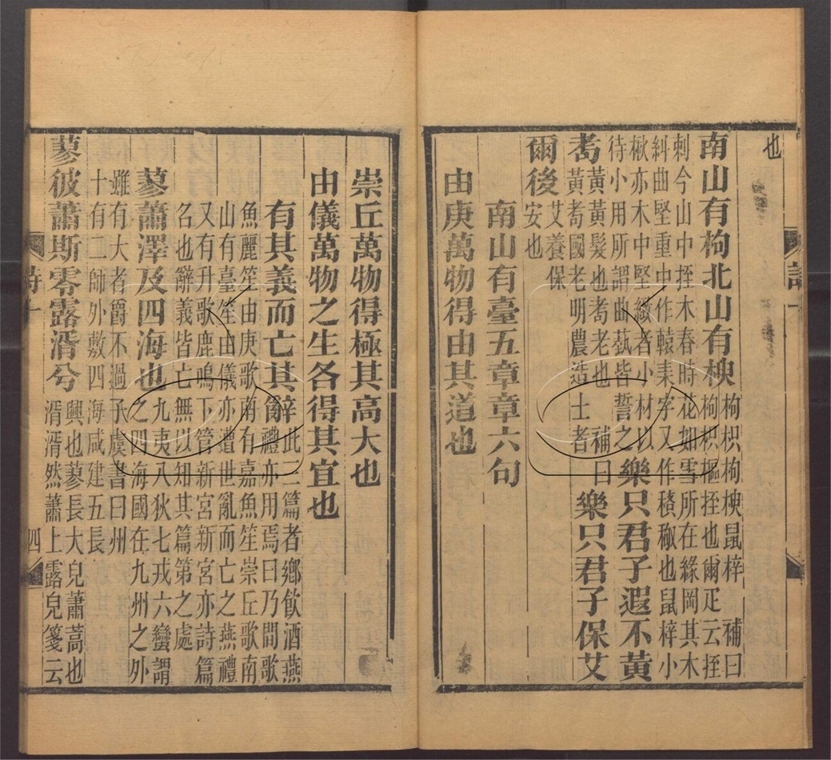 也
南山有枸北山有楰枸枳枸楰鼠梓 補曰
枸枳樞挃也爾疋云挃
刺今山中挃木春時花如雪所在綠岡其木
糾曲堅重中作轅耒字又作也鼠梓小
楸亦木中堅緻者小材以
待小用所謂曲蓺皆誓之樂只君子遐不黃
耇黃黃髮也耇老也 補曰
黃耇國老明農造士者樂只君子保艾
爾後艾養保
安也
南山有臺五章章六句
由庚萬物得由其道也
崇丘萬物得極其高大也
由儀萬物之生各得其宜也
有其義而亡其辭此三篇者鄉飲酒燕
禮亦用焉曰乃間歌
魚麗笙由庚歌南有嘉魚笙崇丘歌南
山有臺笙由儀亦遭世亂而亡之燕禮
又有升歌鹿鳴下管新宮新宮亦詩篇
名也辭義皆亡無以知其篇第之處
蓼蕭澤及四海也九夷八狄七戎六蠻謂
之四海國在九州之外
雖有大者爵不過子虞書曰州
十有二師外敷四海咸建五長
蓼彼蕭斯零露湑兮興也蓼長大皃蕭蒿也
湑湑然蕭上露皃箋云
詩十
四